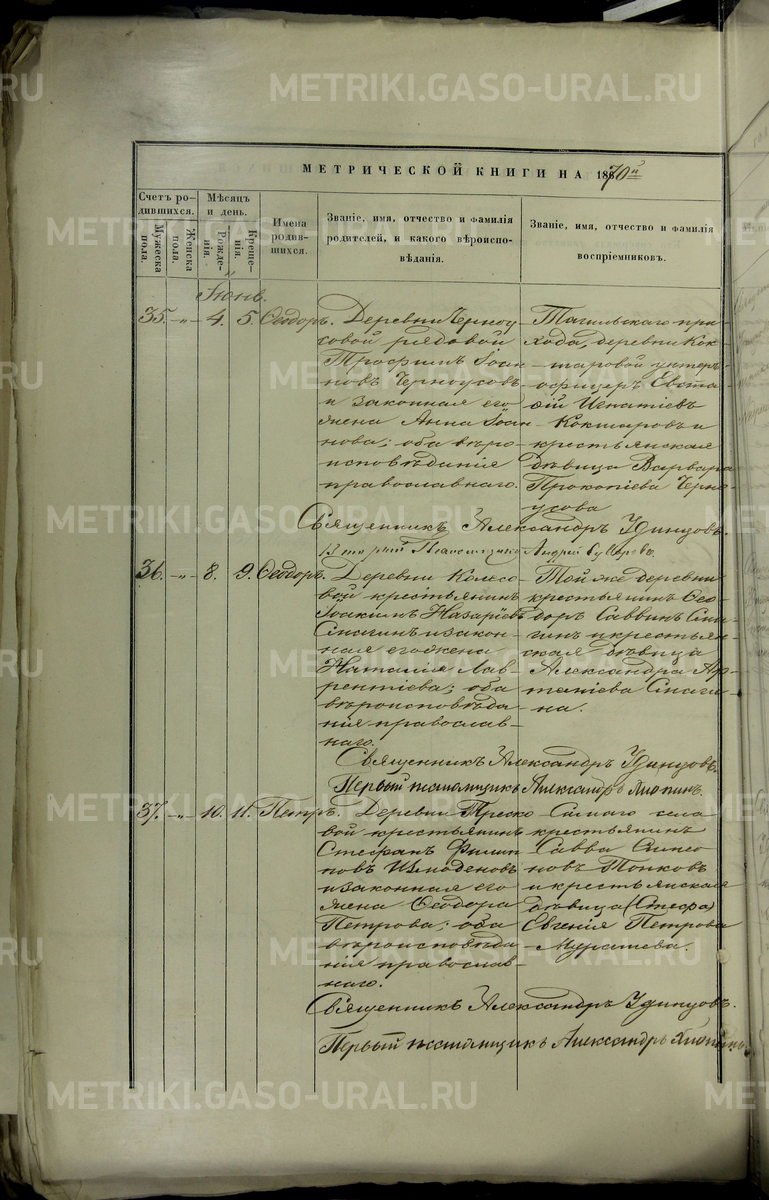 METRIKI.GASO-URAL.RU
МЕТРИЧЕСКОЙ КНИГИ НА 1870й
Счетъ родившихся.
Мужеска пола.
Женска пола.
Мѣсяцъ и день.
Рожденія.
Крещенія.
Имена родившихся.
Званіе, имя, отчество и фамилія родителей, и какого вѣроисповѣданія.
Званіе, имя, отчество и фамилія воспріемниковъ.
Іюнь.
35. -„- 4. 5. Ѳеодоръ.
Деревни Черноу
совой рядовой
Трофимъ Іоан
новъ Черноусовъ
и законная его
жена Анна Іоан
нова; оба вѣро
исповѣданія
православнаго.
Тагильскаго при-
хода, деревни Кок
шаровой унтеръ
офицеръ Евста
ѳій Игнатіевъ
Кокшаровъ и
крестьянская
дѣвица Варвара
Прокопіева Черно
усова
Священникъ Александръ Удинцовъ.
36. -„- 8. 9. Ѳеодоръ.
Деревни Колесо
вой крестьянинъ
Іоакимъ Назаріевъ
Спагинъ и закон-
ная его жена
Наталія Лав-
рентіева; оба
вѣроисповѣда
нія православ-
наго.
Той же деревни
крестьянинъ Ѳео
доръ Саввинъ Спа
гинъ и крестьян-
ская дѣвица
Александра Ар-
теміева Спаги-
на.
Священникъ Александръ Удинцовъ.
Первый псаломщикъ Александръ
37. -„- 10. 11. Петръ.
Деревни
вой крестьянинъ
Стефанъ Филип
повъ Измоденовъ
и законная его
жена Ѳеодора
Петрова; оба
вѣроисповѣда
нія православ-
наго.
Самаго села
крестьянинъ
Савва Симео
новъ Топковъ
и крестьянская
дѣвица (Стефа)
Евгенія Петрова
Священникъ Александръ Удинцовъ.
Первый псаломщикъ Александръ